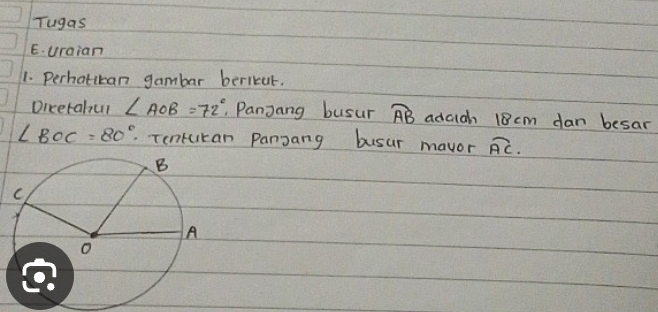 Tugas
E. Uraian
1. Perhatikan gambar berikut.
Diketahui ∠ AOB = 72°. Panjang busur A͡B adalah 18 cm dan besar
∠ BOC = 80°. Tentukan Panjang busur mayor A͡C.
B
C
A
O